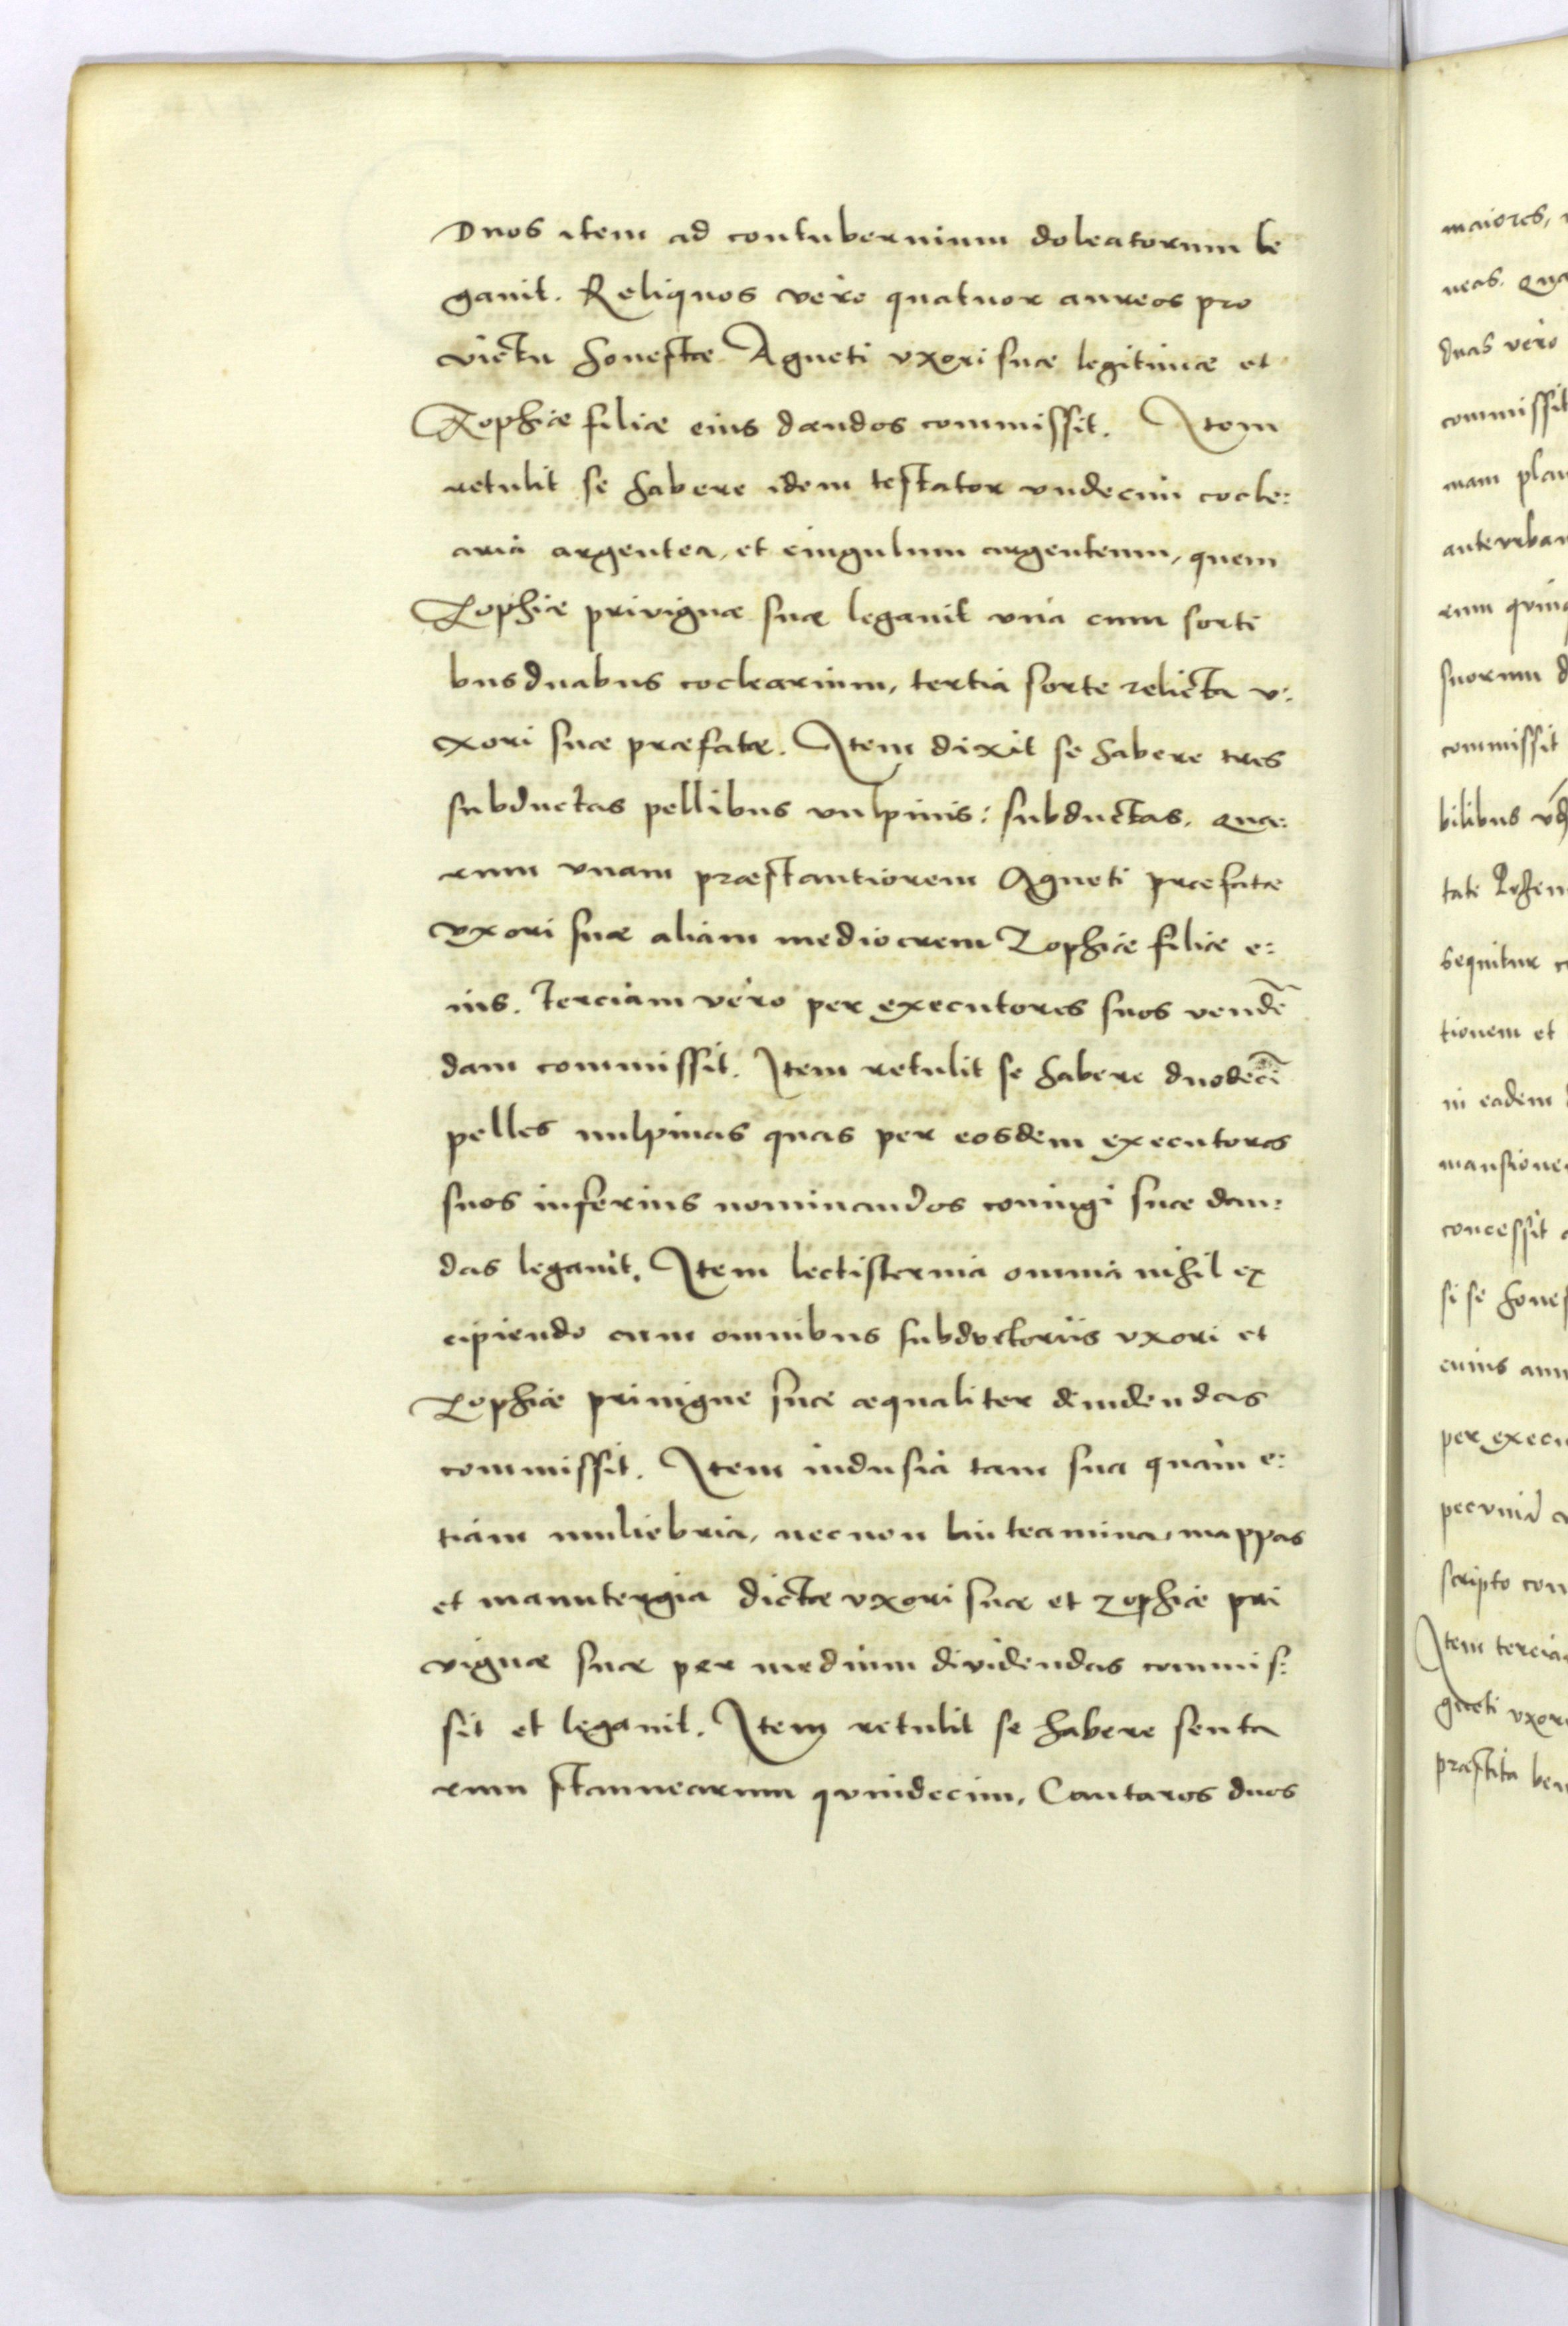 Duos item ad contubernium doleatorum le
gauit. Reliquos vero quatuor aureos pro
victu honestæ Agneti vxori suæ legitimæ et
Zophiæ filiæ eius dandos commissit. Item
retulit se habere idem testator vndecim cocle:
aria argentea, et cingulum argenteum, quem
Zophiæ privignæ suæ legauit vna cum sorti
bus duabus coclearium, tertia sorte relicta v:
xori suæ præfatæ. Item dixit se habere tres
subductas pellibus vulpinis: subductas. Qua:
rum vnam præstantiorem Agneti præfatæ
vxori suæ aliam mediocrem Zophiæ filiæ e:
ius. Terciam vero per executores suos vendē
dam commissit. Item retulit se habere duodecī
pelles uulpinas quas per eosdem executores
suos inferius nominandos coniugi suæ dan:
das legauit. Item lectisternia omnia nihil ex
cipiendo cum omnibus subductoriis vxori et
Zophiæ priuigne suæ æqualiter diuidendas
commissit. Item indusia tam sua quam e:
tiam muliebria, necnon linteamina, mappas
et manutergia dictæ vxori suæ et Zophiæ pri
vignæ suæ per medium dividendas commis:
sit et legauit. Item retulit se habere scuta
rum stannearum quindecim, Cantaros duos
maiores,
neas. Qua
duas vero
commissit
mam plan
ante vrban
rum quin
suorum d
commissit
bilibus
tate
sequitur
tionem et
in eadem
mansione
concessit
si se hones
cuius ann
per execu
pecunia
scripto con
Item tercia
gneti vxori
præstita ben